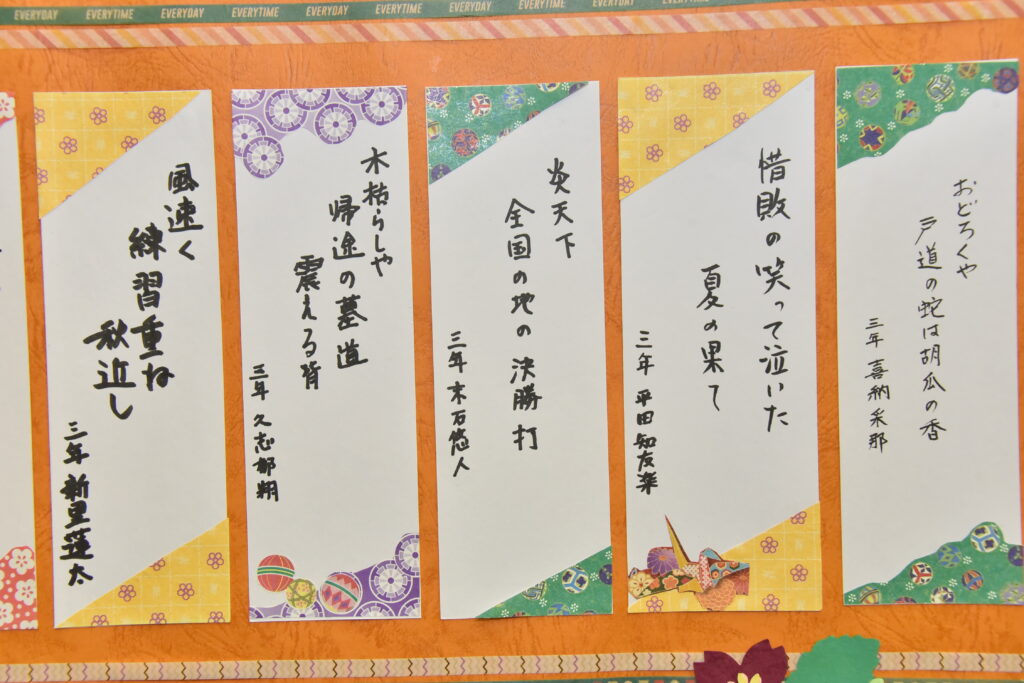 EVERYDAY EVERYTIME EVERYDAY EVERYTIME EVERYDAY EVERYTIME EVERYDAY EVERYTIME EVERYDAY
おどろくや
戸道の蛇は胡瓜の香
三年 喜納采那
惜敗の笑って泣いた
夏の果て
三年 平田知友楽
炎天下
全国の地の決勝打
三年 末石悠人
木枯らしや
帰途の墓道
震える背
三年 久志郁翔
風速く
練習重ね
秋近し
三年 新里蓮太